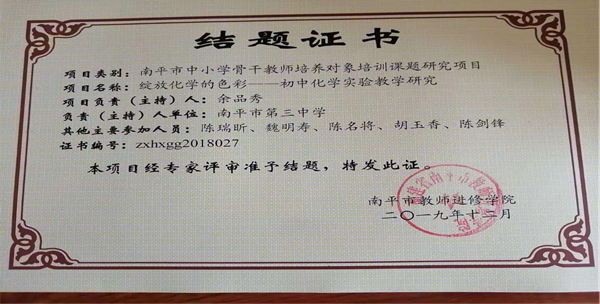 结题证书
项目类别：南平市中小学骨干教师培养对象培训课题研究项目
项目名称：绽放化学的色彩——初中化学实验教学研究
项目负责（主持）人：余品秀
负责（主持）人单位：南平市第三中学
其他主要参加人员：陈瑞昕、魏明寿、陈名将、胡玉香、陈剑锋
证书编号：zxhxgg2018027
本项目经专家评审准予结题，特发此证。
南平市教师进修学院
二〇一九年十二月